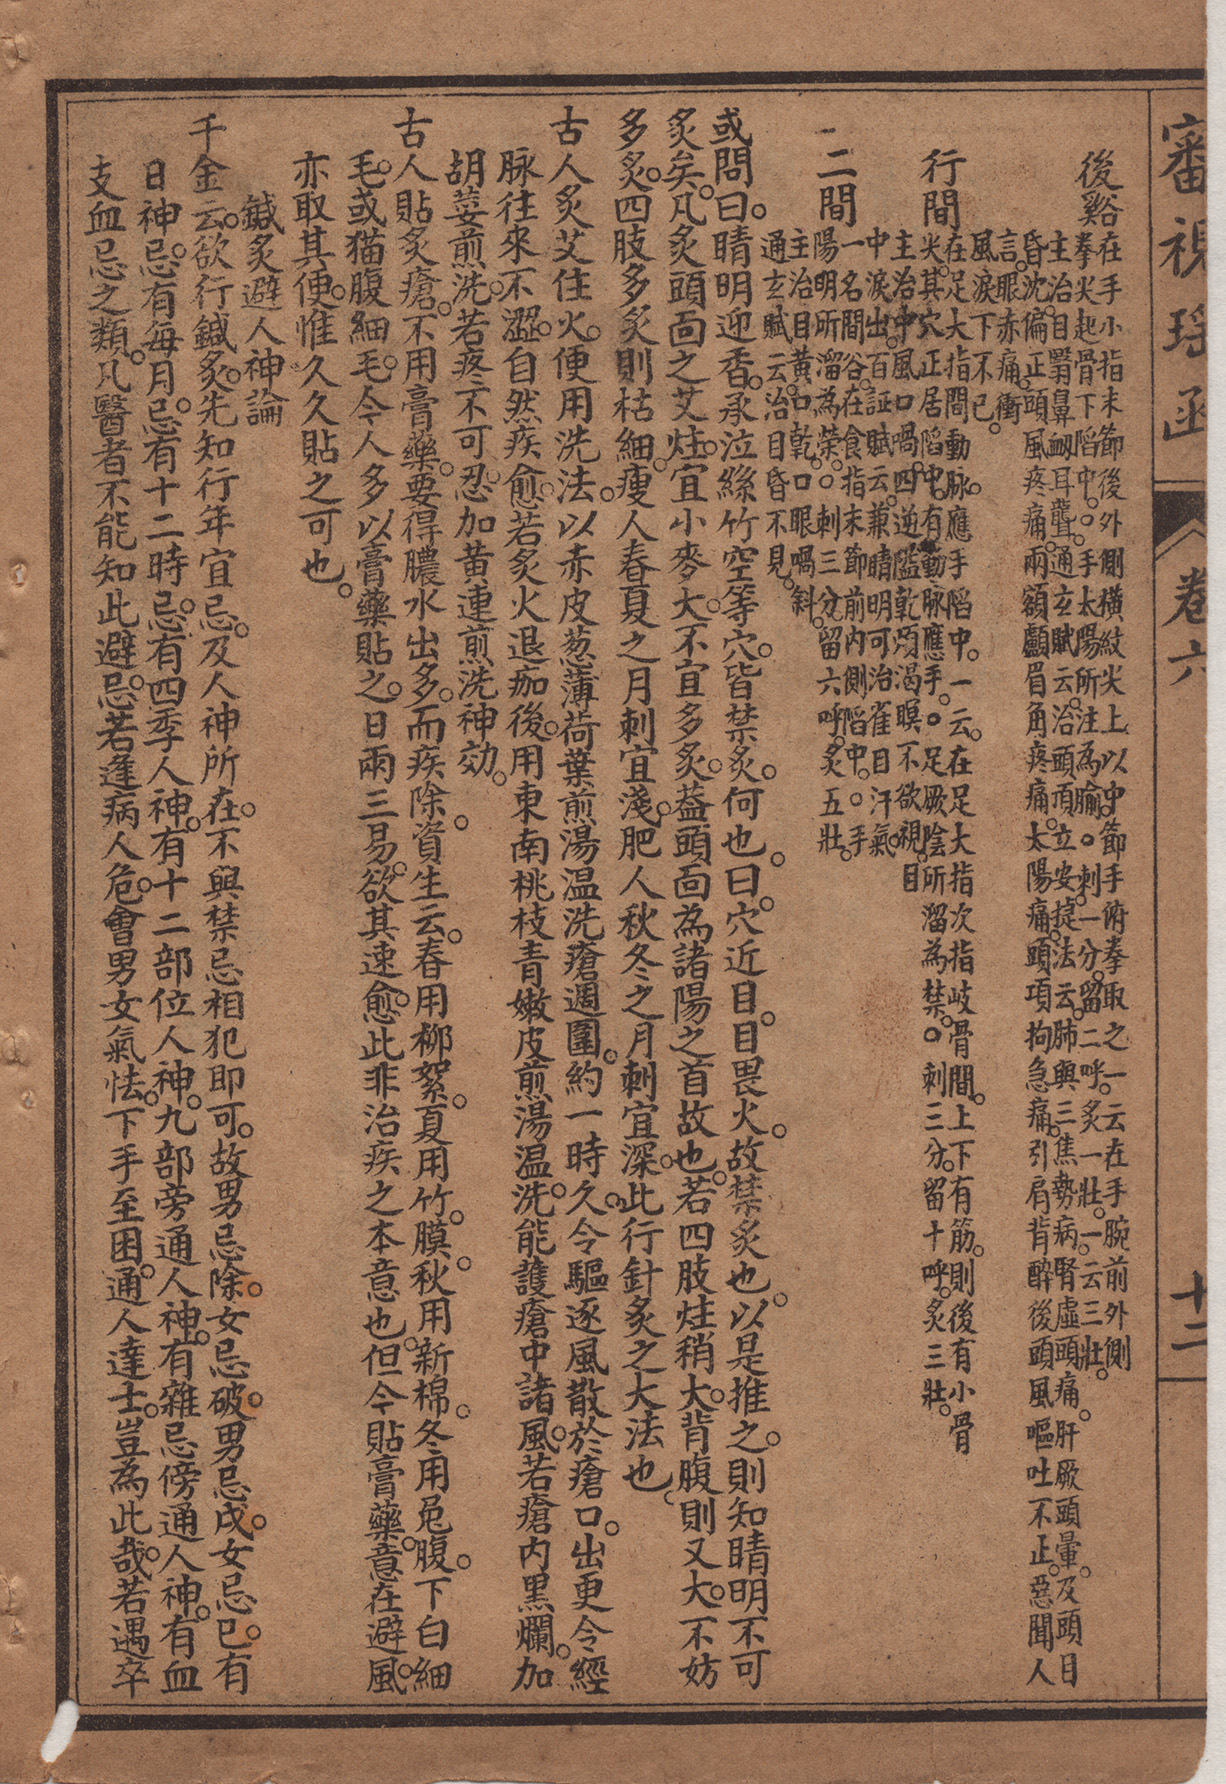 審視瑤函
卷六
十二
後谿
在手小指末節後外側橫紋尖上以中節手俯拳取之一云在手腕前外側
拳尖起骨下陷中○手太陽所注為腧○刺一分留二呼炙一壯一云三壯
主治目翳鼻衂耳聾通玄賦云治頭項立安捷法云肺與三焦勢病腎虛頭痛肝厥頭暈及頭目
昏沈偏正頭風疼痛兩額顱眉角疼痛太陽痛頭項拘急痛引肩背醉後頭風嘔吐不正惡聞人
言眼赤痛衝
風淚下不已
行間
在足大指間動脉應手陷中一云在足大指次指岐骨間上下有筋則後有小骨
尖其穴正居陷中有動脉應手○足厥陰所溜為禁○刺三分留十呼炙三壯
主治中風口喎四逆嗌乾煩渴瞑不欲視目
中淚出百証賦云兼睛明可治雀目汗氣
二間
一名間谷在食指末節前內側陷中○手
陽明所溜為榮○刺三分留六呼炙五壯
主治目黃口乾口眼喎斜
通玄賦云治目昏不見
或問曰睛明迎香承泣絲竹空等穴皆禁炙何也曰穴近目目畏火故禁炙也以是推之則知睛明不可
炙矣凡炙頭面之艾炷宜小麥大不宜多炙葢頭面為諸陽之首故也若四肢炷稍大背腹則又大不妨
多炙四肢多炙則枯細瘦人春夏之月刺宜淺肥人秋冬之月刺宜深此行針炙之大法也
古人炙艾住火便用洗法以赤皮葱薄荷葉煎湯温洗瘡週圍約一時久令驅逐風散於瘡口出更令經
脉往來不澀自然疾愈若炙火退痂後用東南桃枝青嫩皮煎湯温洗能護瘡中諸風若瘡內黑爛加
胡荽煎洗若疼不可忍加黄連煎洗神効
古人貼炙瘡不用膏藥要得膿水出多而疾除資生云春用柳絮夏用竹膜秋用新棉冬用兎腹下白細
毛或猫腹細毛今人多以膏藥貼之日兩三易欲其速愈此非治疾之本意也但今貼膏藥意在避風
亦取其便惟久久貼之可也
鍼炙避人神論
千金云欲行鍼炙先知行年宜忌及人神所在不與禁忌相犯即可故男忌除女忌破男忌戌女忌巳有
日神忌有每月忌有十二時忌有四季人神有十二部位人神九部旁通人神有雜忌傍通人神有血
支血忌之類凡醫者不能知此避忌若逢病人危會男女氣怯下手至困通人達士豈為此哉若遇卒